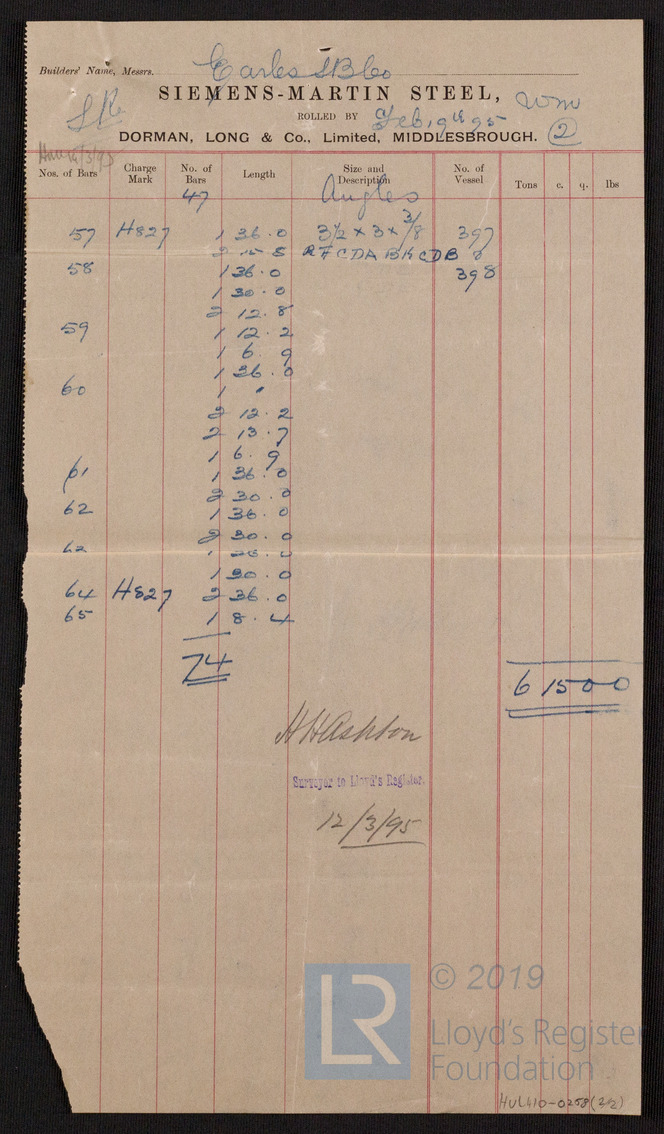 Builders' Name, Messrs. Earles SB Co
SIEMENS-MARTIN STEEL,
ROLLED BY Feb. 9th 95
DORMAN, LONG & Co., Limited, MIDDLESBROUGH. 2
Nos. of Bars Charge Mark No. of Bars Length Size and Description No. of Vessel Tons c. q. lbs
47 Angles
57 H827 1 36.0 3 1/2 x 3 x 3/8 397
2 15 8 R F C D A B H C D B &
58 1 36.0 398
1 30.0
2 12.8
59 1 12.2
1 6.9
1 36.0
60 1 "
2 12.2
2 13.7
1 6.9
61 1 36.0
2 30.0
62 1 36.0
2 30.0
1 30.0
64 H827 2 36.0
65 1 8.4
74
6 15 0 0
H H Ashton
Surveyor to Lloyd's Register.
12/3/95
LR
© 2019
Lloyd's Register
Foundation
HUL410-0258(2/2)